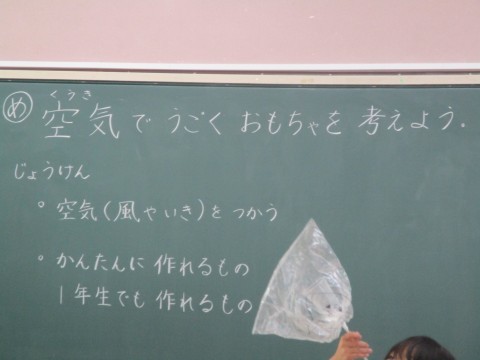 くうき
め 空気でうごくおもちゃを考えよう。
じょうけん
。空気(風やいき)をつかう
。かんたんに作れるもの
1年生でも作れるもの